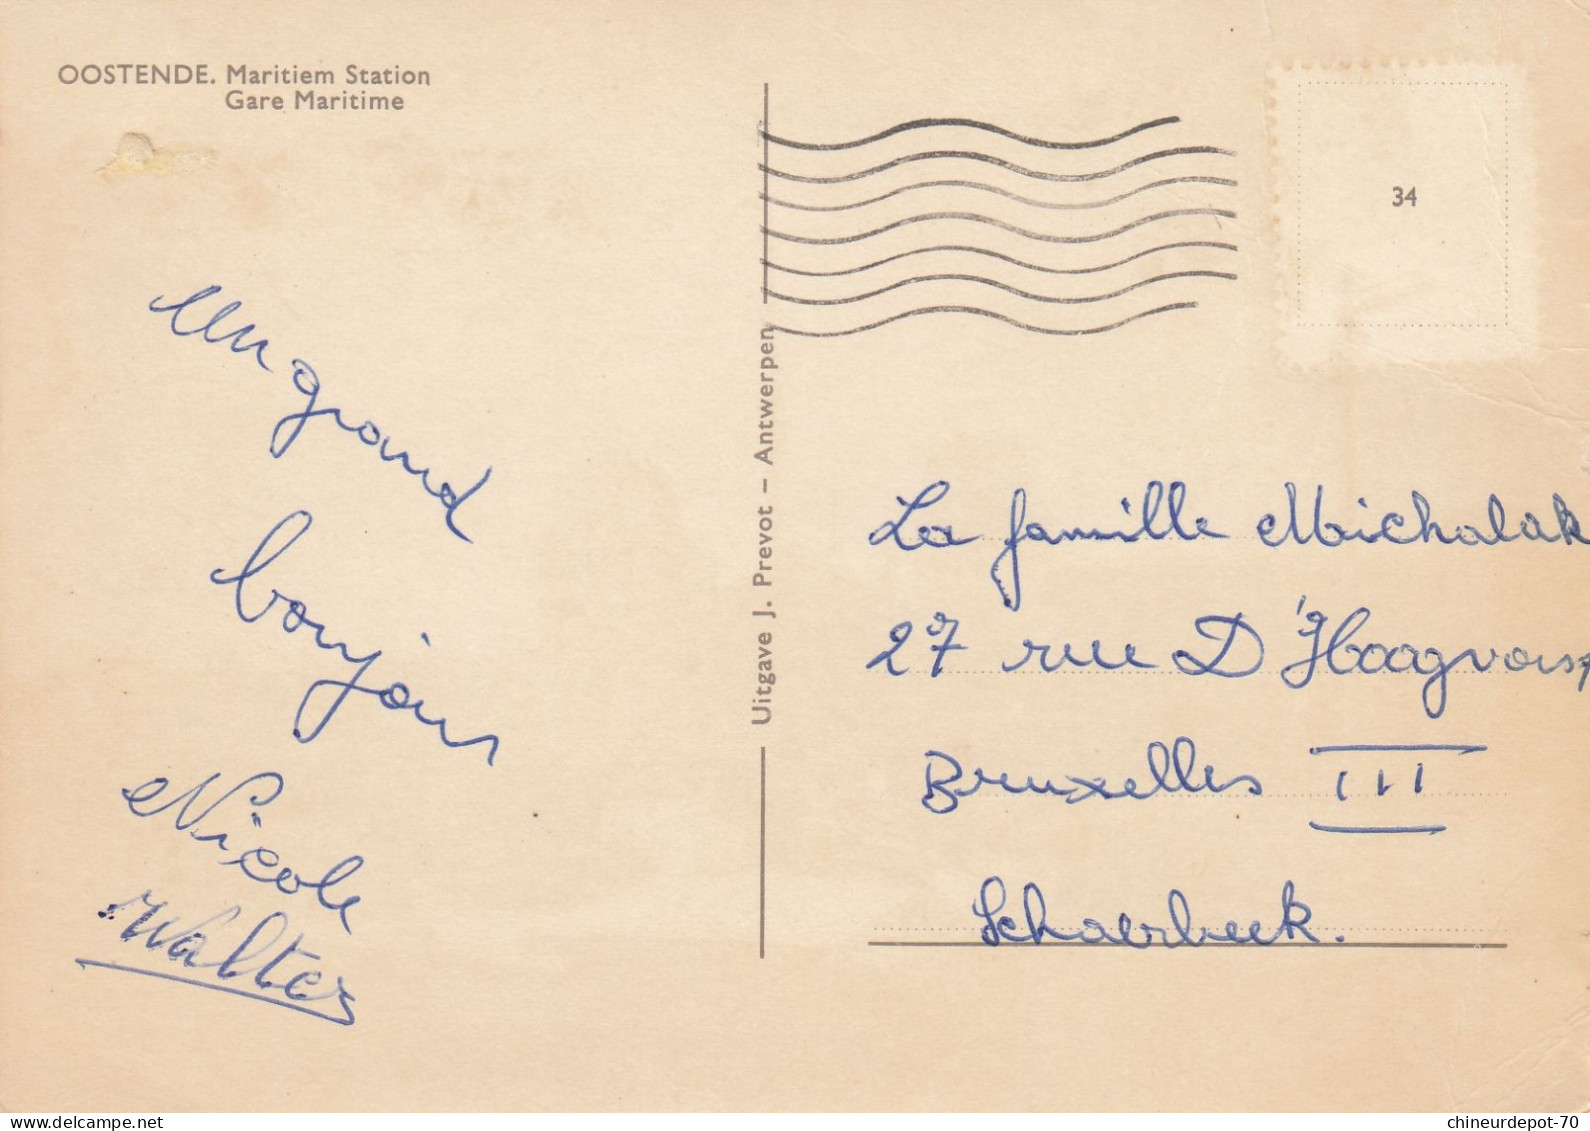 OOSTENDE. Maritiem Station
Gare Maritime
34
Un grand
bonjour
Nicole
Walter
Uitgave J. Prevot – Antwerpen
La famille Michalak
27 rue D'Hoogvorst
Bruxelles III
Schaerbeek.
www.delcampe.net
chineurdepot-70